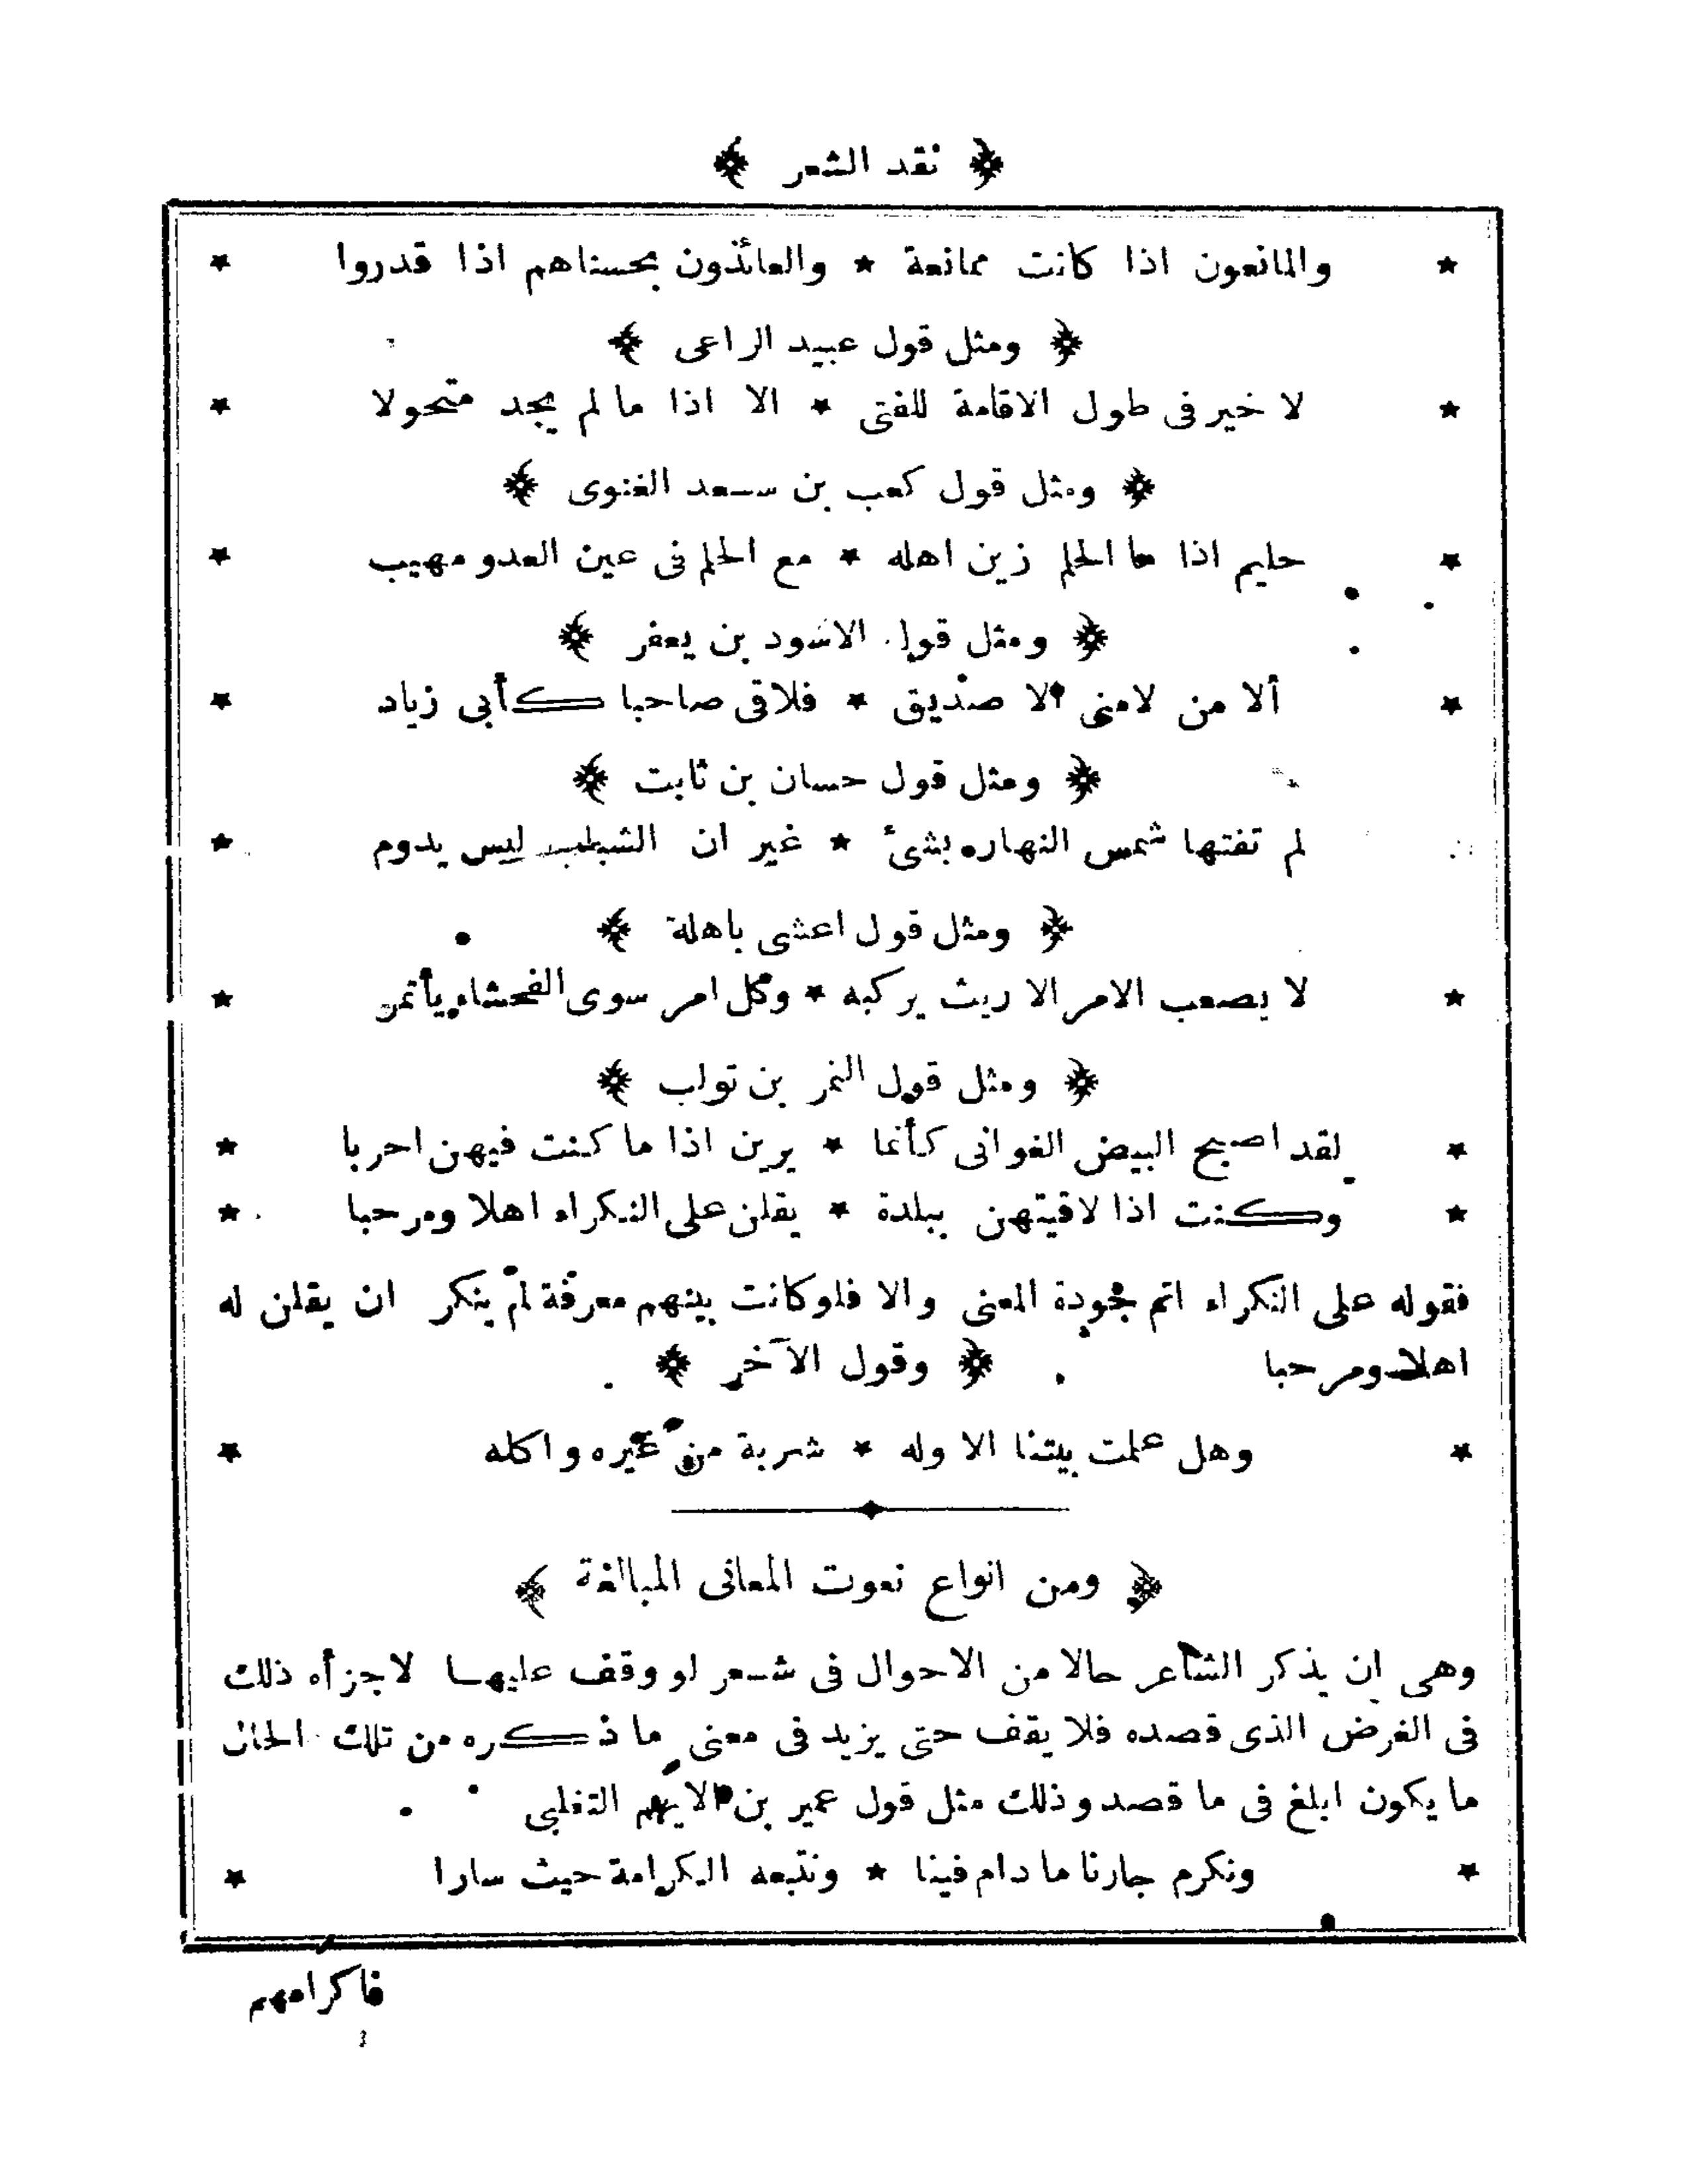 ﴿ نقد الشعر ﴾
* والمانعون اذا كانت ممانعة * والعائذون بحسناهم اذا قدروا *
﴿ ومثل قول عبيد الراعى ﴾
* لا خير فى طول الاقامة للفتى * الا اذا ما لم يجد متحولا *
﴿ ومثل قول كعب بن سعد الغنوى ﴾
* حليم اذا ما الحلم زين اهله * مع الحلم فى عين العدو مهيب *
﴿ ومثل قول الاسود بن يعفر ﴾
* ألا من لامنى الا صديق * فلاقى صاحبا كأبى زياد *
﴿ ومثل قول حسان بن ثابت ﴾
لم تفتها شمس النهار بشئ * غير ان الشباب ليس يدوم *
﴿ ومثل قول اعشى باهلة ﴾
* لا يصعب الامر الا ريث يركبه * وكل امر سوى الفحشاء يأتمر *
﴿ ومثل قول النمر بن تولب ﴾
* لقد اصبح البيض الغوانى كأنما * يرين اذا ما كنت فيهن اجربا *
* وكنت اذا لاقيتهن ببلدة * يقلن على النكراء اهلا ومرحبا *
فقوله على النكراء اتم جودة المعنى والا فلو كانت بينهم معرفة لم ينكر ان يقلن له
اهلا ومرحبا ﴿ وقول الآخر ﴾
* وهل علمت بيتنا الا وله * شربة من غيره واكله *
﴿ ومن انواع نعوت المعانى المبالغة ﴾
وهى ان يذكر الشاعر حالا من الاحوال فى شعر لو وقف عليها لاجزأه ذلك
فى الغرض الذى قصده فلا يقف حتى يزيد فى معنى ما ذكره من تلك الحال
ما يكون ابلغ فى ما قصد وذلك مثل قول عمير بن الايهم التغلبى
* ونكرم جارنا ما دام فينا * ونتبعه الكرامة حيث سارا *
فاكرامهم